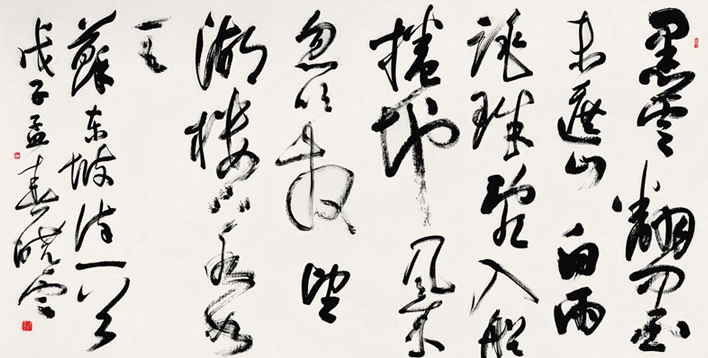 黑雲翻墨
未遮山白雨
跳珠亂入船
捲地風來
忽吹散望
湖樓下水如
天
蘇東坡詩一首
戊子孟春曉雲